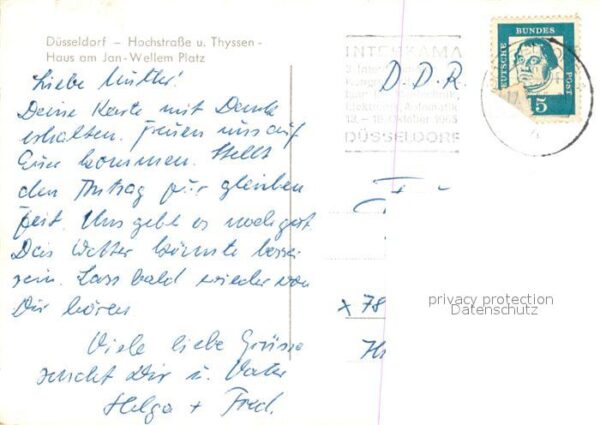 Düsseldorf – Hochstraße u. Thyssen-
Haus am Jan-Wellem Platz
Liebe Mutter!
Deine Karte mit Dank
erhalten. Freuen uns auf
Euer kommen. Stellt
den Antrag zur gleichen
Zeit. Uns geht es noch gut
Das Wetter könnte besser
sein. Lass bald wieder von
Dir hören
Viele liebe Grüsse
schickt Dir u. Vater
Helga + Fred.
INTERKAMA
13. – 19. Oktober 1965
DÜSSELDORF
DEUTSCHE BUNDES POST
5
D.D.R.
x 78
privacy protection
Datenschutz